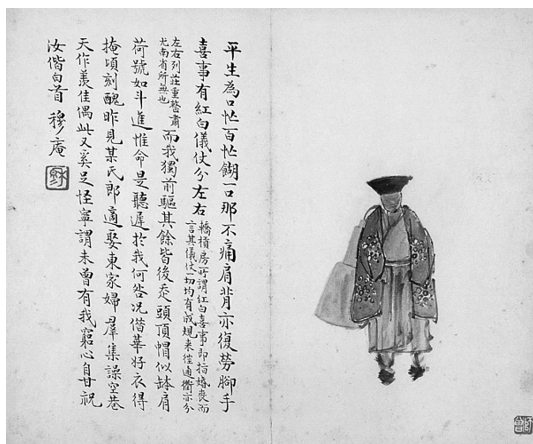 平生為口忙百忙餬一口那不痛肩背亦復勞腳手
喜事有紅白儀仗分左右轎槓房所謂紅白喜事即指婚喪而言其儀仗一切均有成規來往通衢亦分
左右列莊重整肅尤南省所無也而我獨前驅其餘皆後走頭頂帽似缽肩
荷號如斗進惟命是聽遲於我何咎況借華好衣得
掩頃刻醜昨見某氏郎適娶東家婦羣集譟空巷
天作羨佳偶此又奚足怪寧謂未曾有我窮心自甘祝
汝偕白首 穆庵